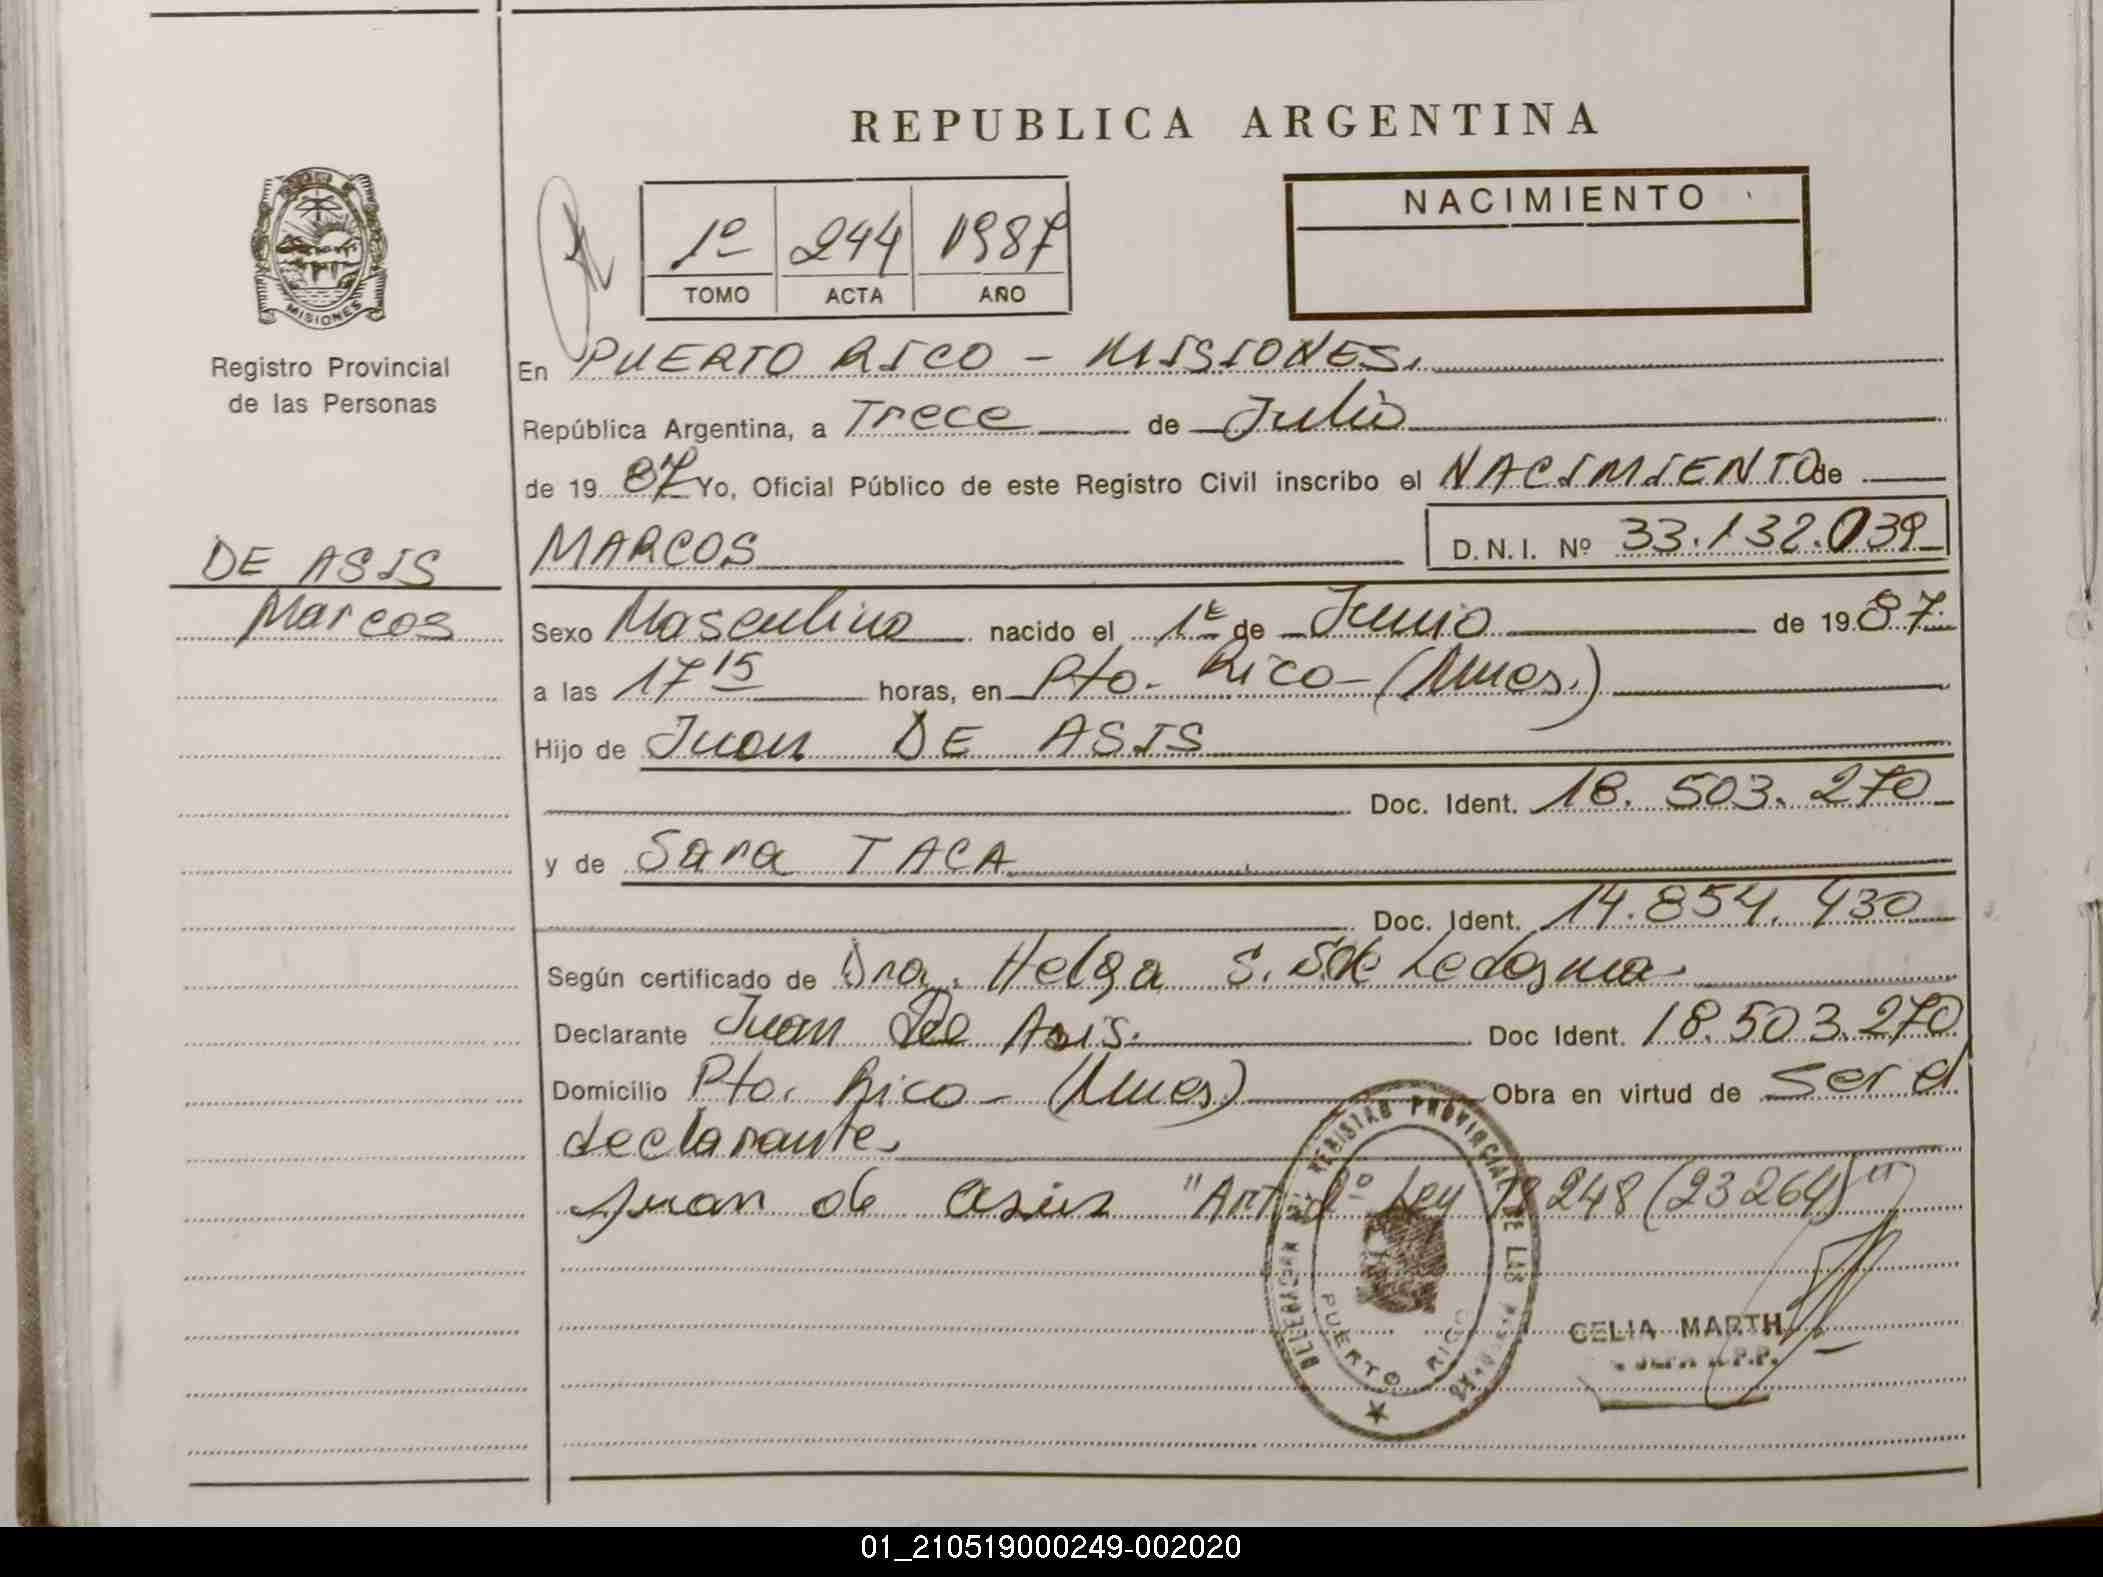 REPUBLICA ARGENTINA
NACIMIENTO
1º 244 1987
TOMO ACTA AÑO
MISIONES
Registro Provincial
de las Personas
En PUERTO RICO - MISIONES.
República Argentina, a Trece de Julio
de 19 87 Yo, Oficial Público de este Registro Civil inscribo el NACIMIENTO de
DE ASIS
Marcos
MARCOS D.N.I. Nº 33.132.039
Sexo Masculino nacido el 1º de Junio de 19 87
a las 17 15 horas, en Pto. Rico - (Mnes.)
Hijo de Juan DE ASIS
Doc. Ident. 18.503.270
y de Sara TACA
Doc. Ident. 14.854.430
Según certificado de Dra. Helga S. S. de Ledesma
Declarante Juan De Asis. Doc Ident. 18.503.270
Domicilio Pto. Rico - (Mnes) Obra en virtud de ser el
declarante
Juan de Asis "Art. Ley 18248 (23264)"
REGISTRO PROVINCIAL DE LAS
PUERTO RICO
CELIA MARTH
01_210519000249-002020